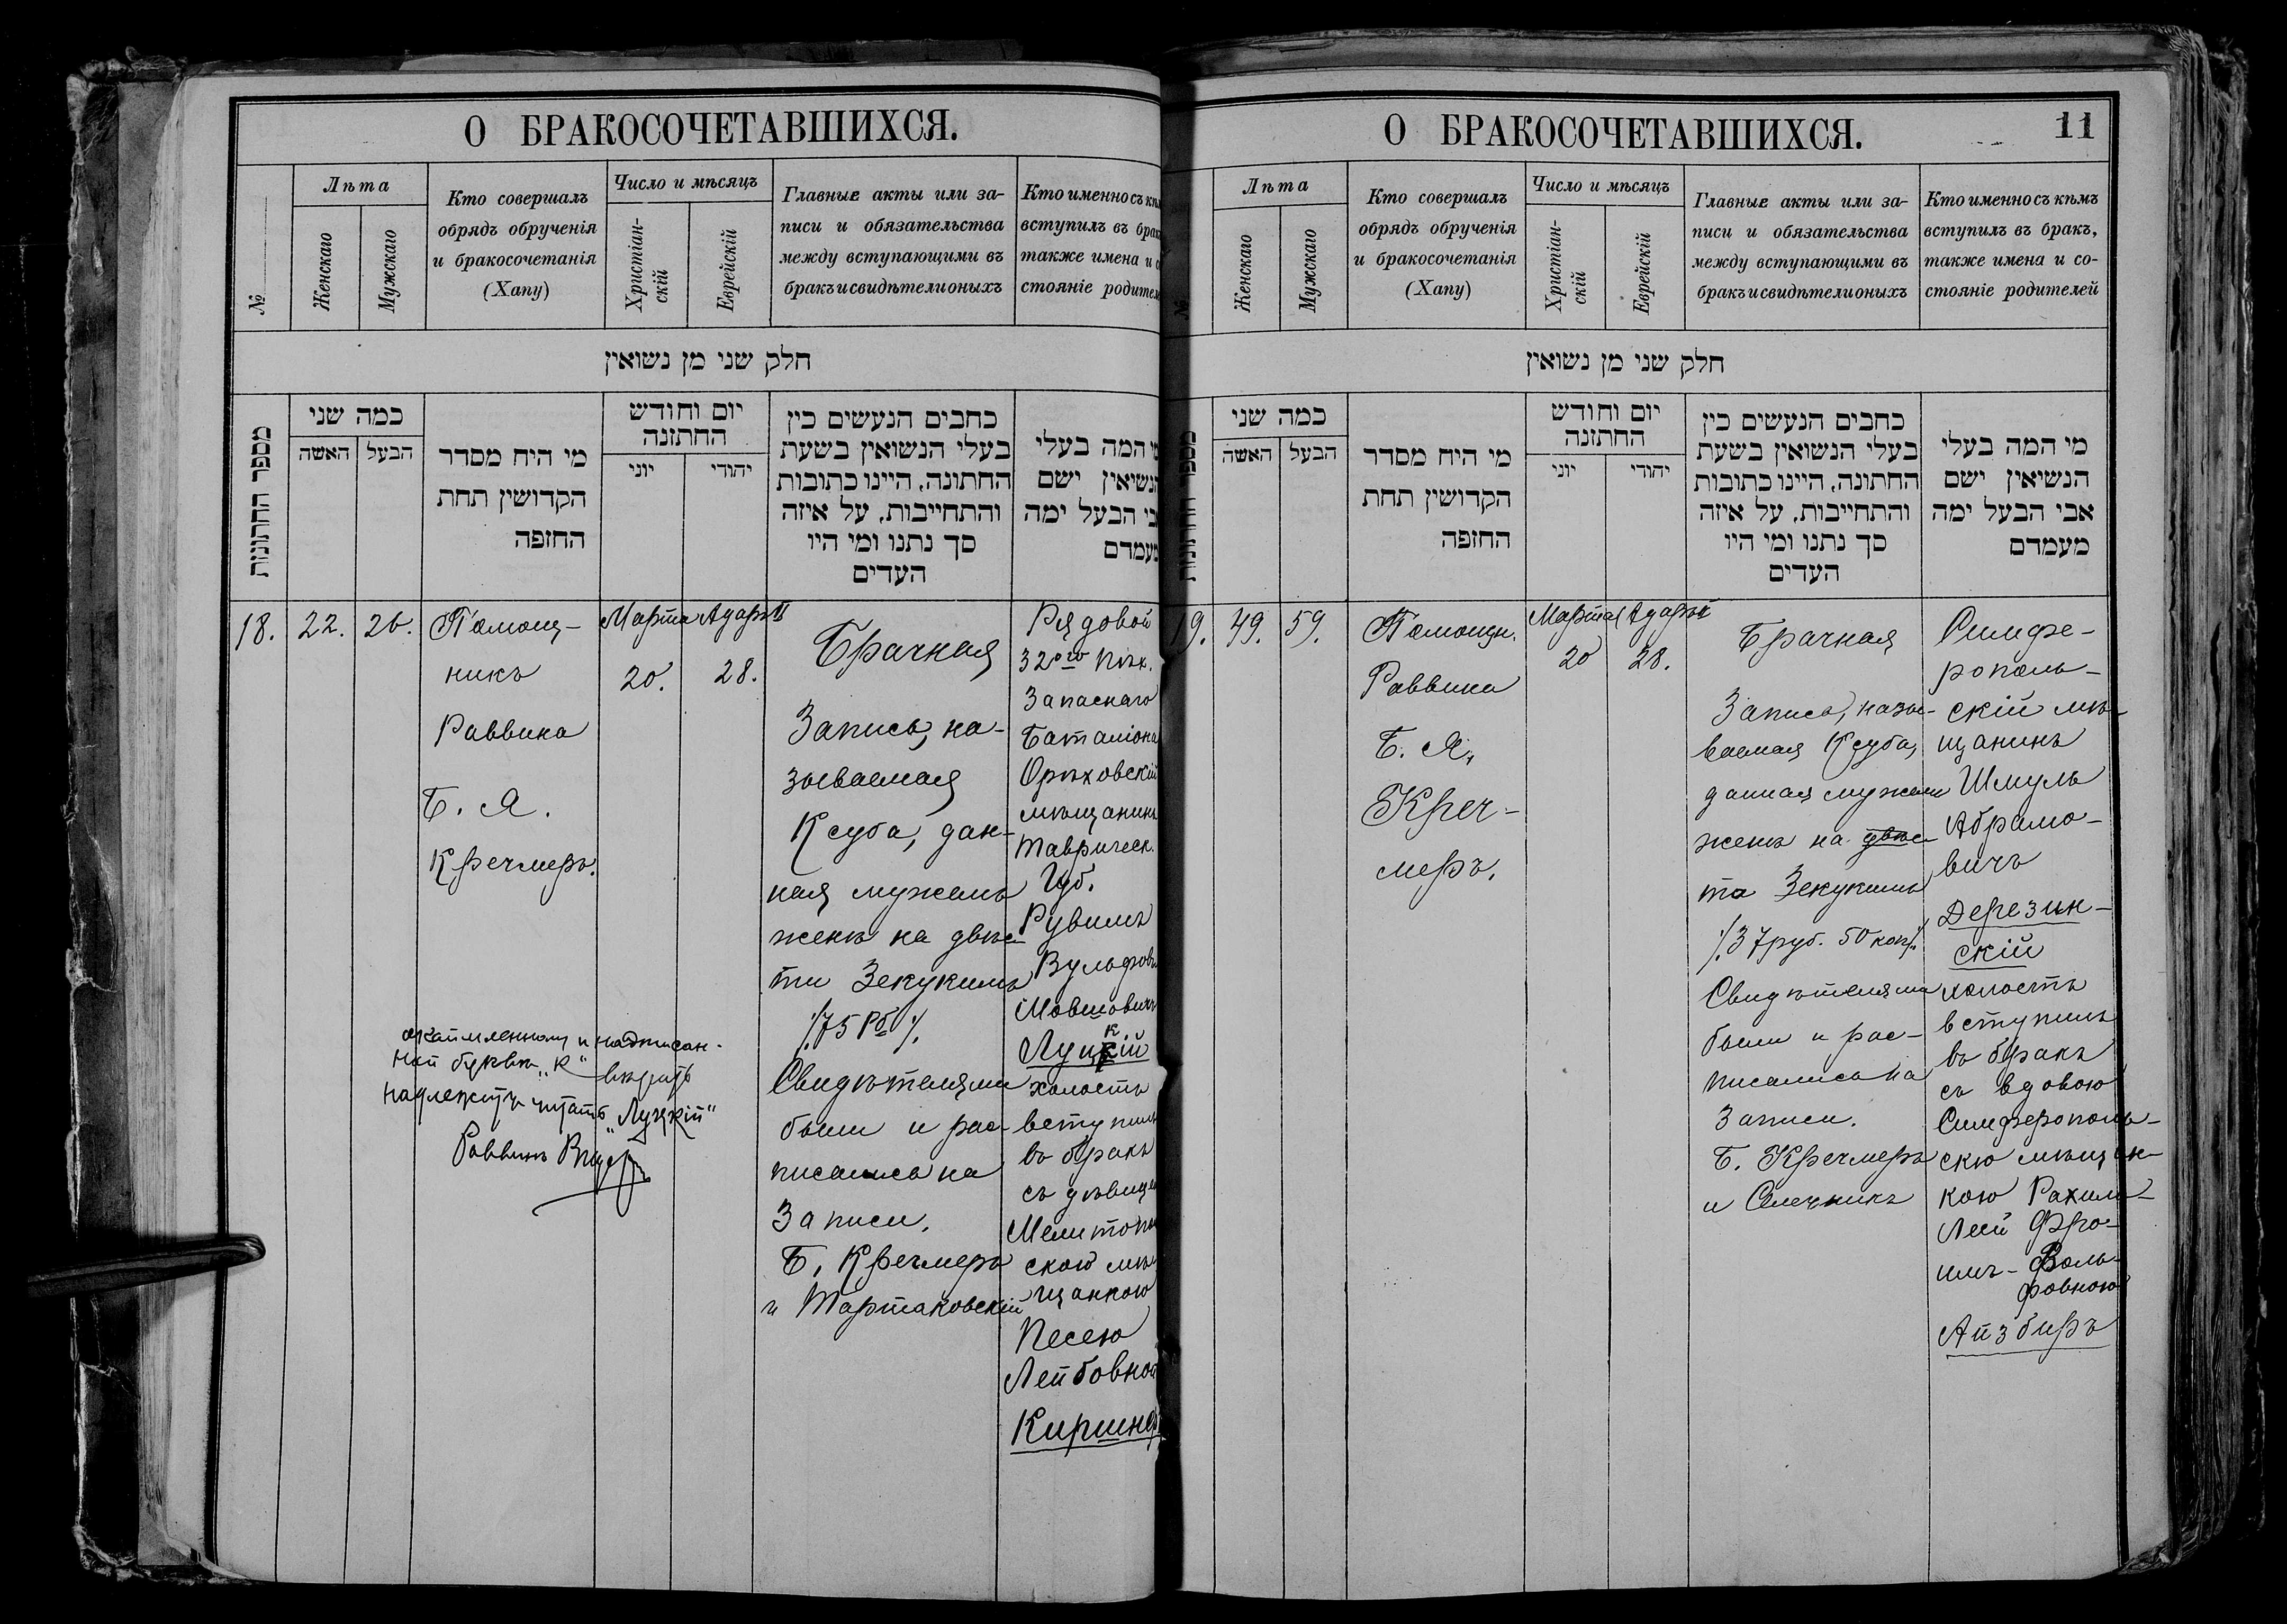 О БРАКОСОЧЕТАВШИХСЯ.
№
Лѣта
Женскаго
Мужскаго
Кто совершалъ
обрядъ обрученія
и бракосочетанія
(Хапу)
Число и мѣсяцъ
Христіан-
скій
Еврейскій
Главные акты или за-
писи и обязательства
между вступающими въ
бракъ и свидѣтели оныхъ
Кто именно съ
вступилъ въ
также имена и
стояніе
חלק שני מן נשואין
מספר החתונות
כמה שני
האשה
הבעל
מי היח מסדר
הקדושין תחת
החזפה
יום וחודש
החתזנה
יוני
יהודי
כחבים הנעשים כין
בעלי הנשואין בשעת
החתונה, היינו כתובות
והתחייבות, על איזה
סך נתנו ומי היו
העדים
המה בעלי
ישם
הבעל ימה
מעמדם
18.
22.
26.
Помощ-
никъ
Раввина
Б. Я.
Кречмеръ.
Марта
20.
Адаръ II
28.
Брачная
Запись, на-
зываемая
Ксуба, дан-
ная мужемъ
женѣ на двѣс-
ти Зекукимъ
/75 Рб/.
Свидѣтелями
были и рас-
писались на
Записи.
Б. Кречмеръ
и Тартаковскій
Рядовой
32го Пѣх.
Запаснаго
Баталіона
Орѣховскій
мѣщанинъ
Таврическ.
Губ.
Рувимъ
Вульфовъ
Мовшовичъ
Луцкій
к
холостъ
вступилъ
въ бракъ
съ дѣвицей
Мелитопол
скою мѣ
щанкою
Песею
Лейбовной
Киршнер
надписан-
ной буквѣ „к" вѣрить
надлежитъ читать „Луцкій"
Раввинъ
О БРАКОСОЧЕТАВШИХСЯ.
11
№
Лѣта
Женскаго
Мужскаго
Кто совершалъ
обрядъ обрученія
и бракосочетанія
(Хапу)
Число и мѣсяцъ
Христіан-
скій
Еврейскій
Главные акты или за-
писи и обязательства
между вступающими въ
бракъ и свидѣтели оныхъ
Кто именно съ кѣмъ
вступилъ въ бракъ,
также имена и со-
стояніе родителей
חלק שני מן נשואין
כמה שני
האשה
הבעל
מי היח מסדר
הקדושין תחת
החזפה
יום וחודש
החתזנה
יוני
יהודי
כחבים הנעשים כין
בעלי הנשואין בשעת
החתונה, היינו כתובות
והתחייבות, על איזה
סך נתנו ומי היו
העדים
מי המה בעלי
הנשיאין ישם
אבי הבעל ימה
מעמדם
19.
49.
59.
Помощн.
Раввина
Б. Я.
Креч-
меръ.
Марта
20
Адаръ II
28.
Брачная
Запись, назы-
ваемая Ксуба,
данная мужемъ
женѣ на двѣс-
та Зекукимъ
/37 руб. 50 коп/.
Свидѣтелями
были и рас-
писались на
Записи.
Б. Кречмеръ
и Олечникъ
Симфе-
рополь-
скій мѣ-
щанинъ
Шмуль
Абрамо-
вичъ
Дерезин-
скій
холостъ
вступилъ
въ бракъ
съ вдовою
Симферополь-
скю мѣщан-
кою Рахиль-
Леей Фро-
имъ-Воль-
фовною
Айзбиръ